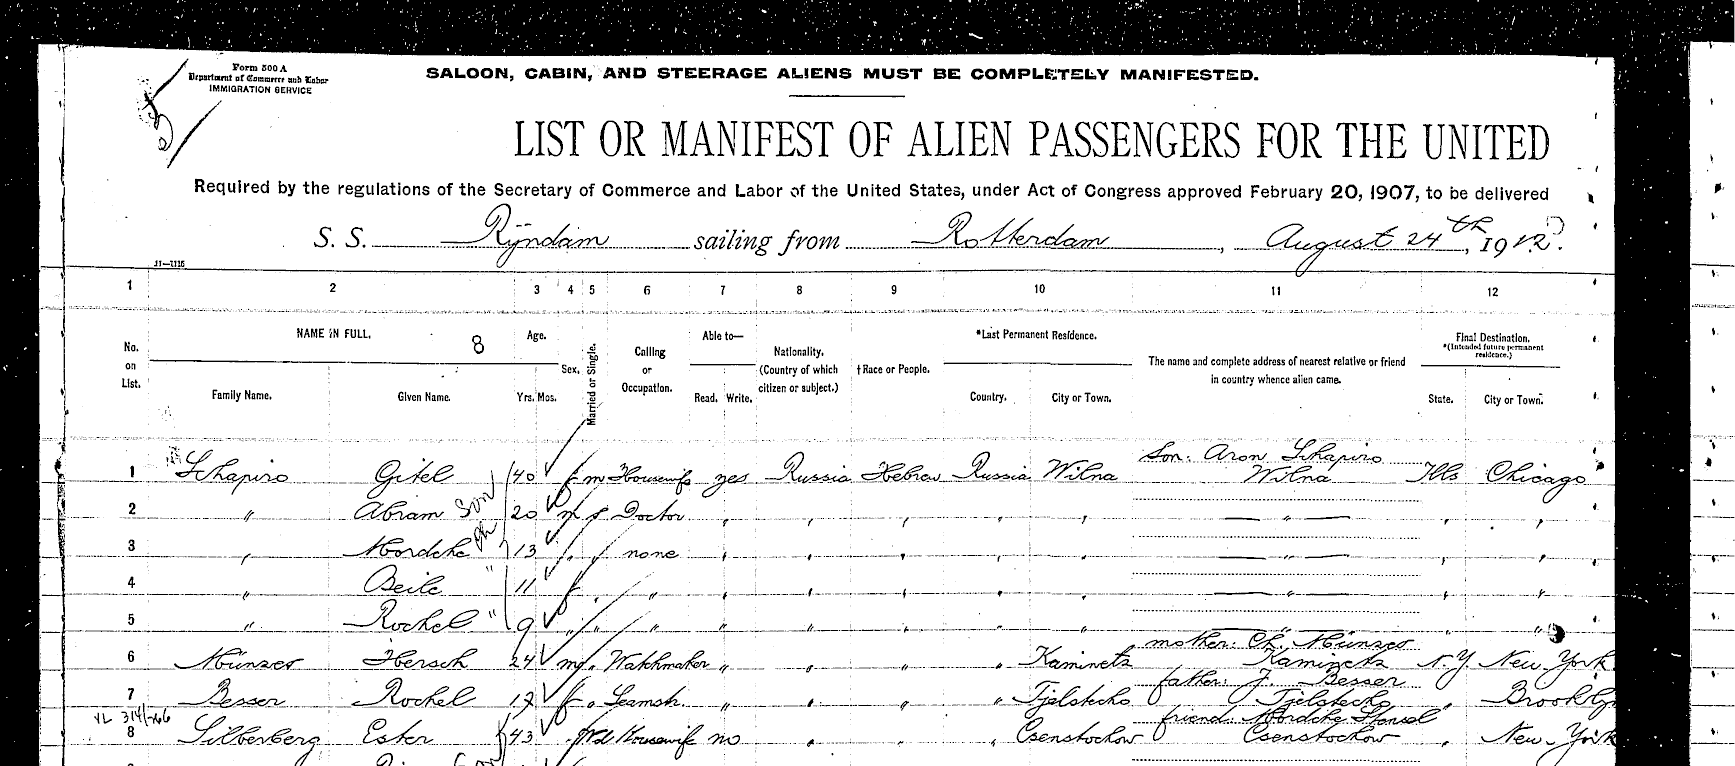 Form 500 A
Department of Commerce and Labor
IMMIGRATION SERVICE
SALOON, CABIN, AND STEERAGE ALIENS MUST BE COMPLETELY MANIFESTED.
LIST OR MANIFEST OF ALIEN PASSENGERS FOR THE UNITED
Required by the regulations of the Secretary of Commerce and Labor of the United States, under Act of Congress approved February 20, 1907, to be delivered
S. S. Ryndam sailing from Rotterdam, August 24th, 1912.
1 2 3 4 5 6 7 8 9 10 11 12
No. on List.
NAME IN FULL. 8
Family Name. Given Name.
Age.
Yrs. Mos.
Sex.
Married or Single.
Calling or Occupation.
Able to—
Read. Write.
Nationality. (Country of which citizen or subject.)
†Race or People.
*Last Permanent Residence.
Country. City or Town.
The name and complete address of nearest relative or friend in country whence alien came.
Final Destination.
*(Intended future permanent residence.)
State. City or Town.
1 Schapiro Gitel 40 f m Housewife yes Russia Hebrew Russia Wilna son: Aron Schapiro Wilna Ills Chicago
2 " Abram son 20 m s Doctor " " " " " — " — " "
3 " Mordche 13 " " none " " " " " — " — " "
4 " Beile " 11 f " " " " " " " " " "
5 " Rochel " 9 " " " " " " " " " " "
6 Münser Hersch 24 m " Watchmaker " " " " Kaminetz mother: Ch. Münser Kaminetz N.Y. New York
7 Besser Rochel 17 f " Seamstr. " " " " Tjelstecho father: J. Besser Tjelstecho " Brookly
VL 314/266
8 Silberberg Ester 43 f Wd Housewife no " " " Csenstochow friend: Mordche Csenstochow " New-York